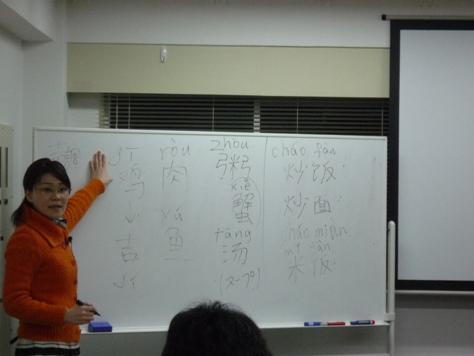 jī ròu zhōu chǎo fàn
鸡 肉 粥 炒饭
xiè
蟹 炒面
yú tāng chǎo miàn
吉 鱼 汤 mǐ fàn
米饭
jí (スープ)